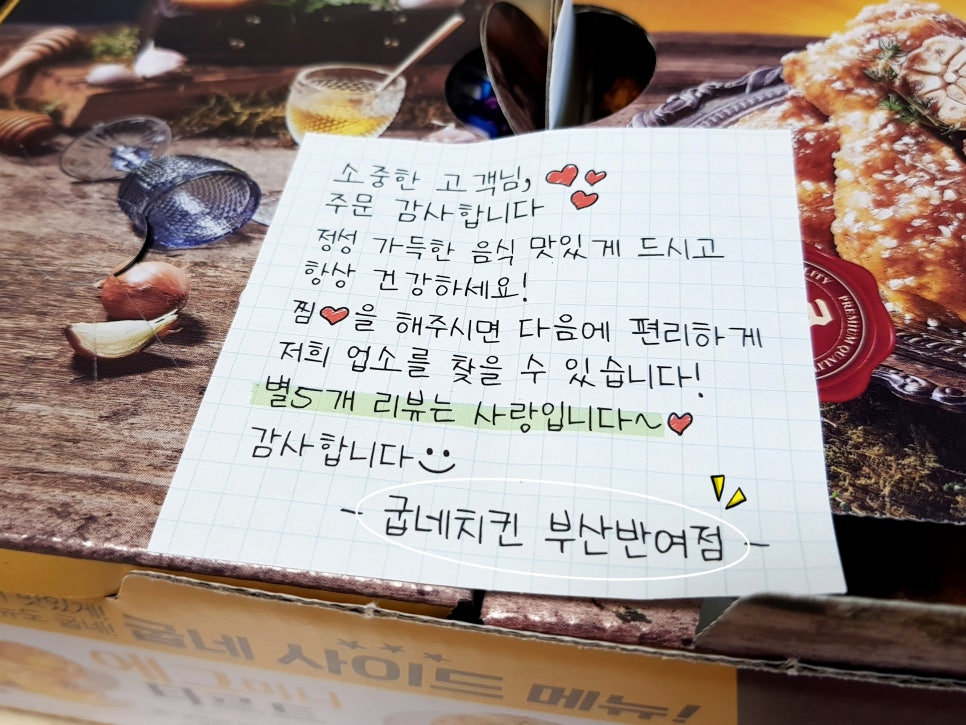 소중한 고객님,
주문 감사합니다
정성 가득한 음식 맛있게 드시고
항상 건강하세요!
찜♥을 해주시면 다음에 편리하게
저희 업소를 찾을 수 있습니다!
별5개 리뷰는 사랑입니다~♥
감사합니다
- 굽네치킨 부산반여점 -
PREMIUM QUALITY
맛있게!
굽네 사이드 메뉴!
에그미니
타르트